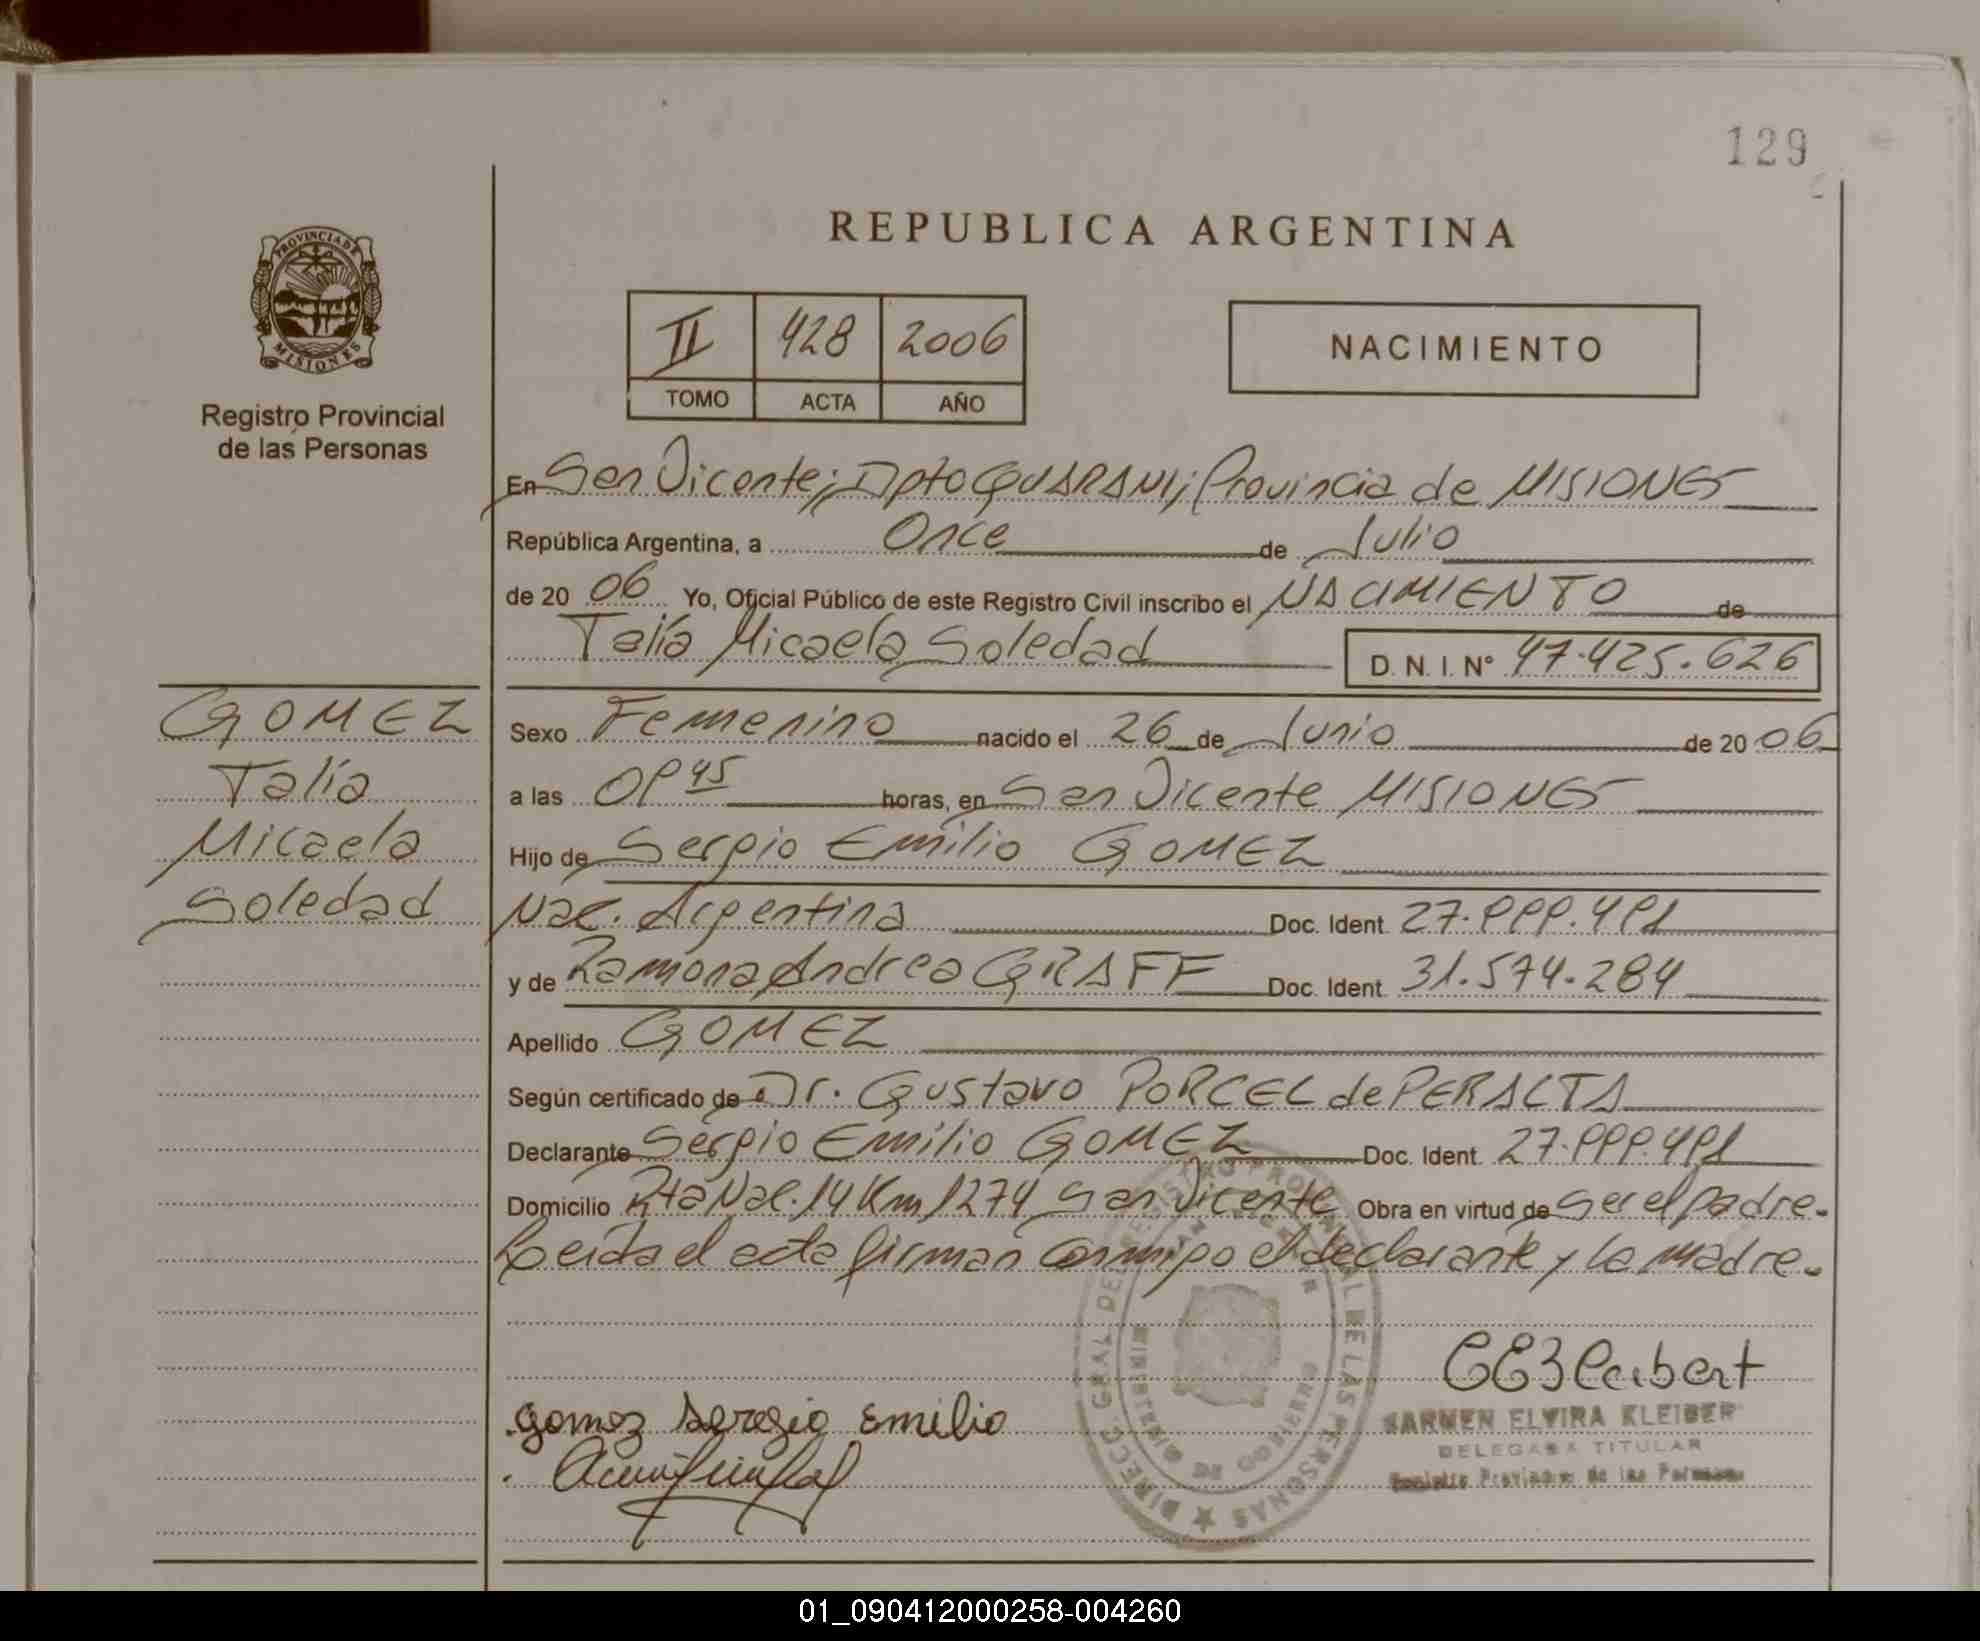 129
PROVINCIA DE
MISIONES
Registro Provincial
de las Personas
REPUBLICA ARGENTINA
II 428 2006
TOMO ACTA AÑO
NACIMIENTO
En San Vicente; Dpto GUARANI; Provincia de MISIONES
República Argentina, a Once de Julio
de 20 06 Yo, Oficial Público de este Registro Civil inscribo el NACIMIENTO de
Talía Micaela Soledad D. N. I. N° 47.425.626
GOMEZ
Talía
Micaela
Soledad
Sexo Femenino nacido el 26 de Junio de 20 06
a las 09 45 horas, en San Vicente MISIONES
Hijo de Sergio Emilio GOMEZ
Nac. Argentina Doc. Ident. 27.999.491
y de Ramona Andrea GRAFF Doc. Ident. 31.574.284
Apellido GOMEZ
Según certificado de Dr. Gustavo PORCEL de PERALTA
Declarante Sergio Emilio GOMEZ Doc. Ident. 27.999.491
Domicilio Rta Nac. 14 Km 1274 San Vicente Obra en virtud de Ser el padre.
Leída el acta firman conmigo el declarante y la madre.
gomez Sergio Emilio
CARMEN ELVIRA KLEIBER
DELEGADA TITULAR
Registro Provincial de las Personas
DIRECC. GRAL. DEL REGISTRO PROVINCIAL DE LAS PERSONAS
MINISTERIO DE GOBIERNO
01_090412000258-004260